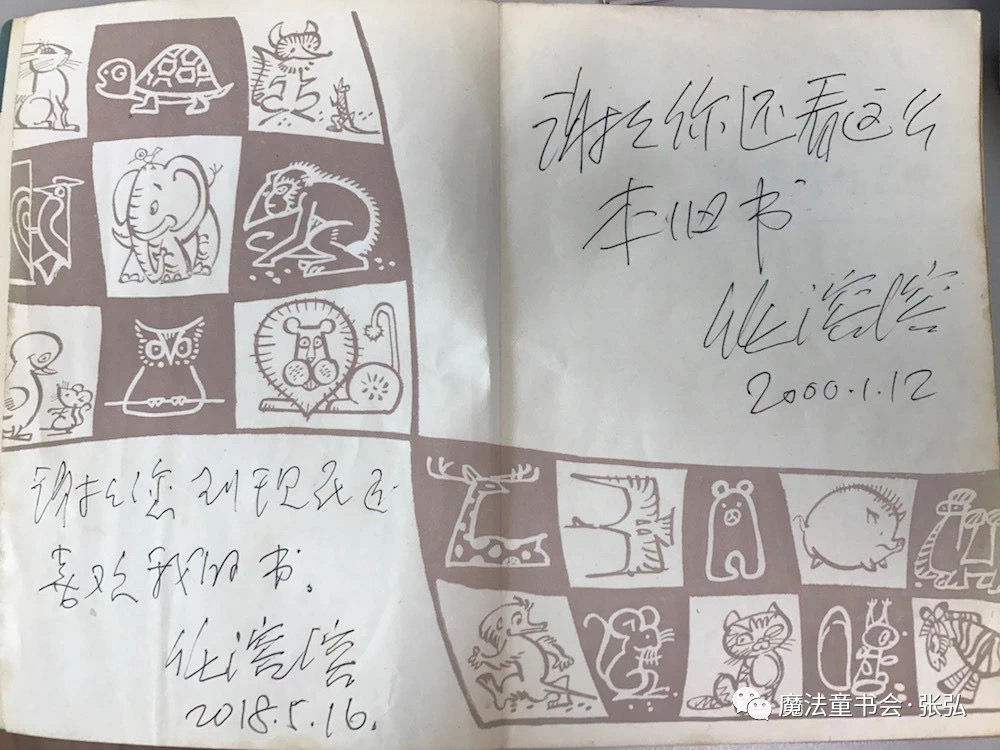 谢谢您到现在还
喜欢我的书。
任溶溶
2018.5.16.
谢谢你还看这么
本旧书
任溶溶
2000.1.12
魔法童书会·张弘